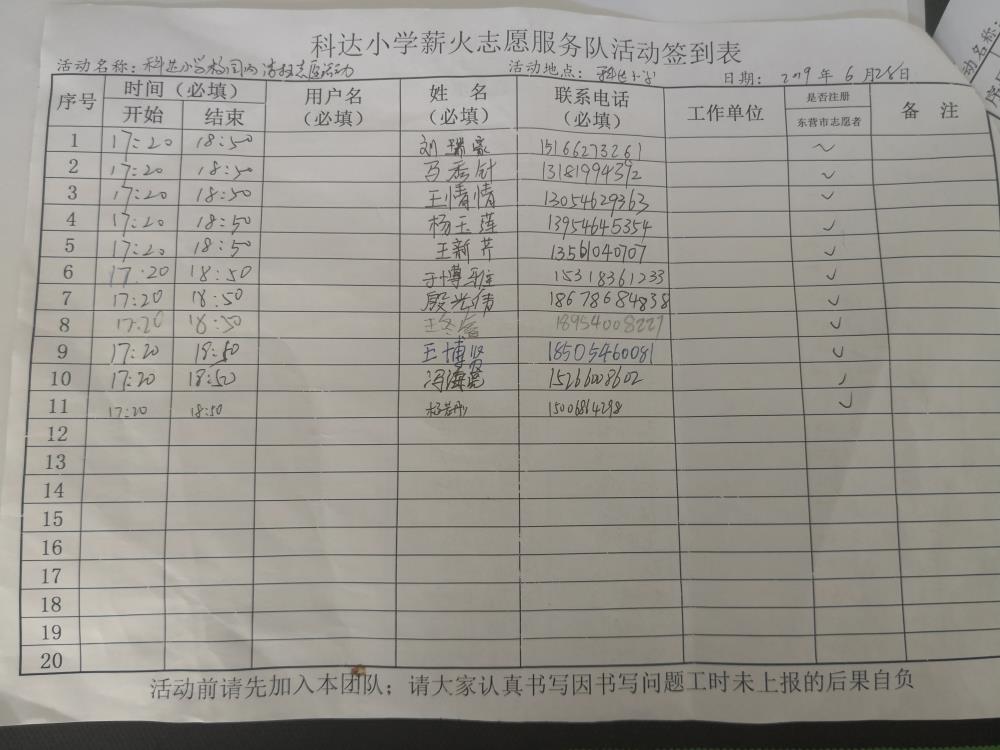 科达小学薪火志愿服务队活动签到表
活动名称：科达小学校园内清扫志愿活动 活动地点：科达小学 日期：2019年6月28日
序号 时间（必填） 开始 结束 用户名（必填） 姓名（必填） 联系电话（必填） 工作单位 是否注册东营市志愿者 备注
1 17:20 18:50 刘瑞豪 15166273261 ✓
2 17:20 18:50 马秀针 13181994392 ✓
3 17:20 18:50 王情情 13054629363 ✓
4 17:20 18:50 杨玉莲 13954645354 ✓
5 17:20 18:50 王新芹 13561040707 ✓
6 17:20 18:50 于博雅 15318361233 ✓
7 17:20 18:50 殷兴倩 18678684838 ✓
8 17:20 18:50 18954008227 ✓
9 17:20 18:50 王博贤 18505460081 ✓
10 17:20 18:50 冯海亮 15266008602 ✓
11 17:20 18:50 15006864298 ✓
12
13
14
15
16
17
18
19
20
活动前请先加入本团队；请大家认真书写因书写问题工时未上报的后果自负